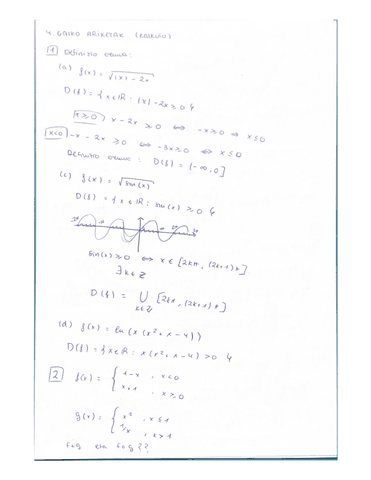 4. GAIKO ARIKETAK (KALKULU)
1 Definizio eremua:
(a) f(x) = √(|x| - 2x)
D(f) = {x ∈ ℝ : |x| - 2x ≥ 0}
x ≥ 0 x - 2x ≥ 0 ⟺ -x ≥ 0 ⇒ x ≤ 0
x<0 -x - 2x ≥ 0 ⟺ -3x ≥ 0 ⟺ x ≤ 0
Definizio eremua : D(f) = (-∞, 0]
(c) f(x) = √(sin(x))
D(f) = {x ∈ ℝ : sin(x) ≥ 0}
sin(x) ≥ 0 ⟺ x ∈ [2kπ, (2k+1)π]
∃ k ∈ ℤ
D(f) = ⋃ [2kπ, (2k+1)π]
k ∈ ℤ
(d) f(x) = ln(x(x² + x - 4))
D(f) = {x ∈ ℝ : x(x² + x - 4) > 0}
2 f(x) = { 1-x , x<0
x+1 , x ≥ 0
g(x) = { x² , x ≤ 1
1/x , x > 1
f∘g eta f+g ??